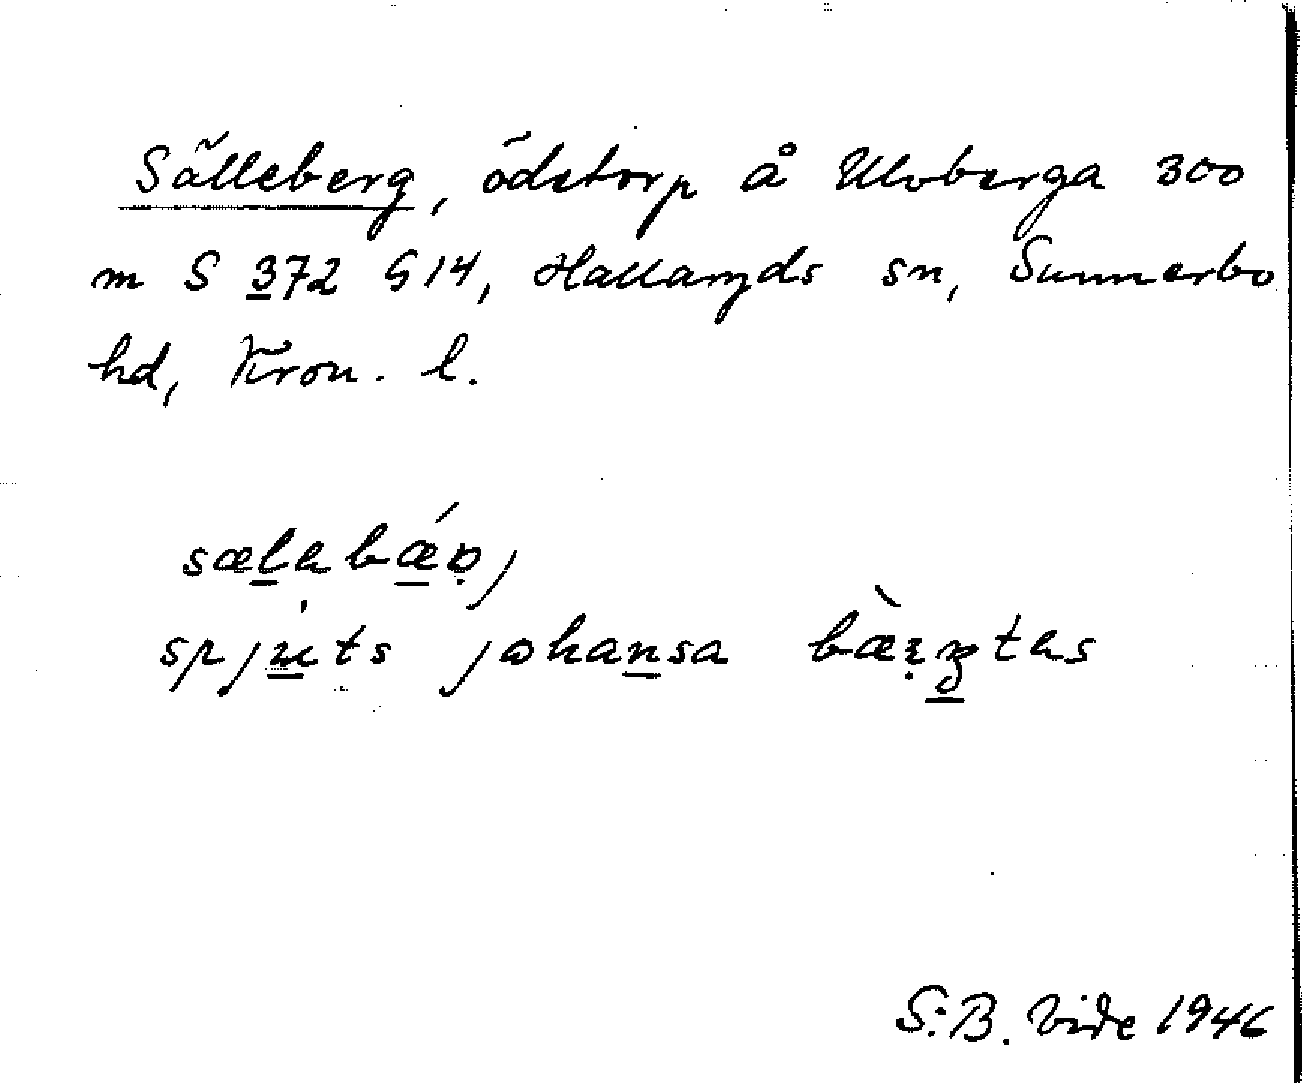 Sälleberg, ödetorp å Ulvberga 300
m S 372 G14, Hallaryds sn, Sunnerbo
hd, Kron. l.
sæla bǽꝛj
spjúts johansa bæ̀rgtas
S:B. Vide 1946